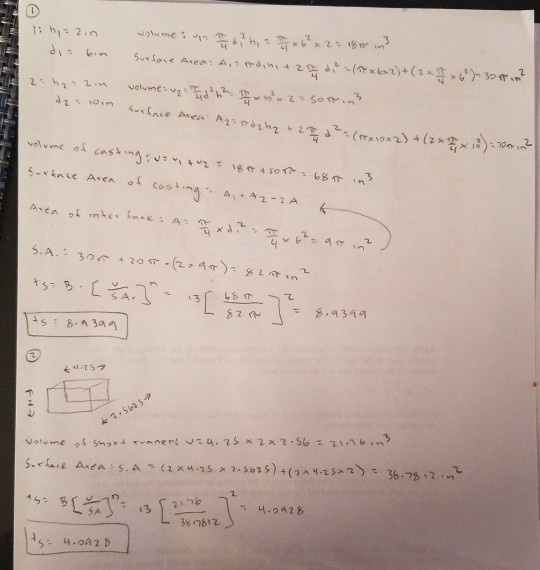 ①
1: h₁ = 2in volume: v₁ = π/4 d₁² h₁ = π/4 × 6² × 2 = 18π in³
d₁ = 6in Surface Area: A₁ = πd₁h₁ + 2 π/4 d₁² = (π×6×2) + (2×π/4×6²) = 30π in²
2: h₂ = 2in volume: v₂ = π/4 d²h² = π/4 × 10² × 2 = 50π in³
d₂ = 10in Surface Area: A₂ = πd₂h₂ + 2 π/4 d² = (π×10×2) + (2×π/4×10²) = 70π in²
volume of casting: v = v₁ + v₂ = 18π + 50π = 68π in³
Surface Area of casting: A₁ + A₂ - 2A
Area of interface: A = π/4 × d₁² = π/4 × 6² = 9π in²
S.A.: 30π + 70π - (2×9π) = 82π in²
ts = B · [v/S.A.]ⁿ = 13 [68π/82π]² = 8.9399
ts = 8.9399
②
←4.25→
2
←2.5625→
Volume of short runner: v = 4.25 × 2 × 2.56 = 21.76 in³
Surface Area: S.A = (2×4.25×2.5625) + (2×4.25×2) = 38.7812 in²
ts = B[v/SA]ⁿ = 13 [21.76/38.7812]² = 4.0928
ts = 4.0928